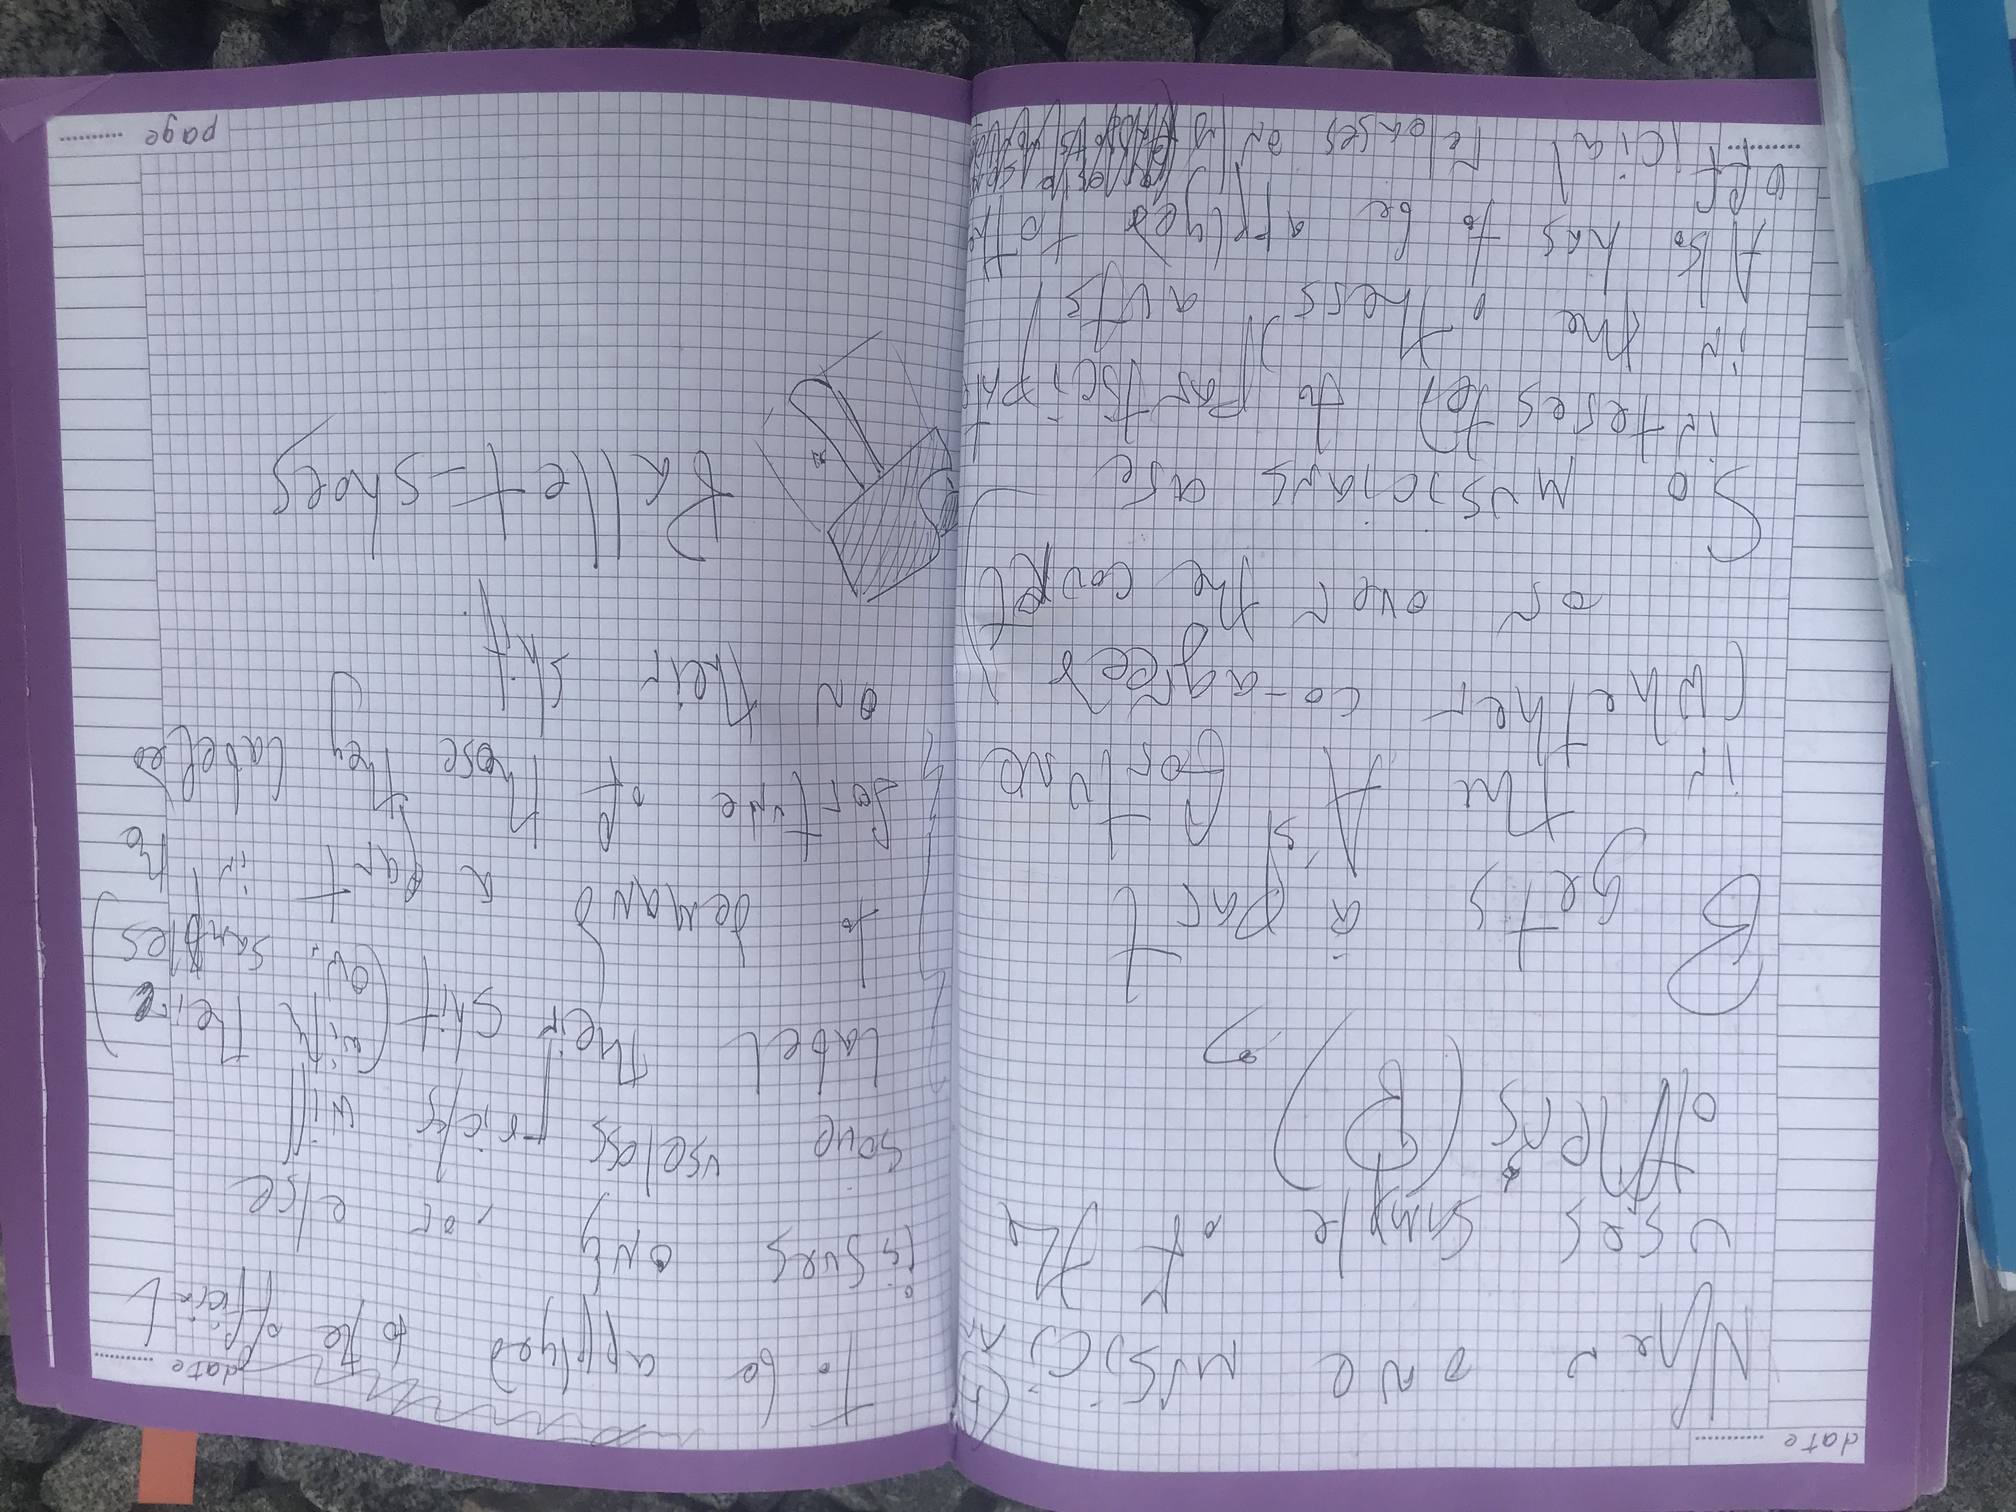 date
When one musician (A)
uses sample of the
others (B)
B gets a part
in the A's fortune
(whether co-agreed
or over the court)
So musicians are
interested to
in the thess acts
Also has to be applyed to the
official releases only
date
To be applyed to the official
issues only, or else
some useless pricks will
label their shit (with their
ov. samples in no)
to demand a part
fortune of those they labeled
on their shit.
Ballet-shoes
page